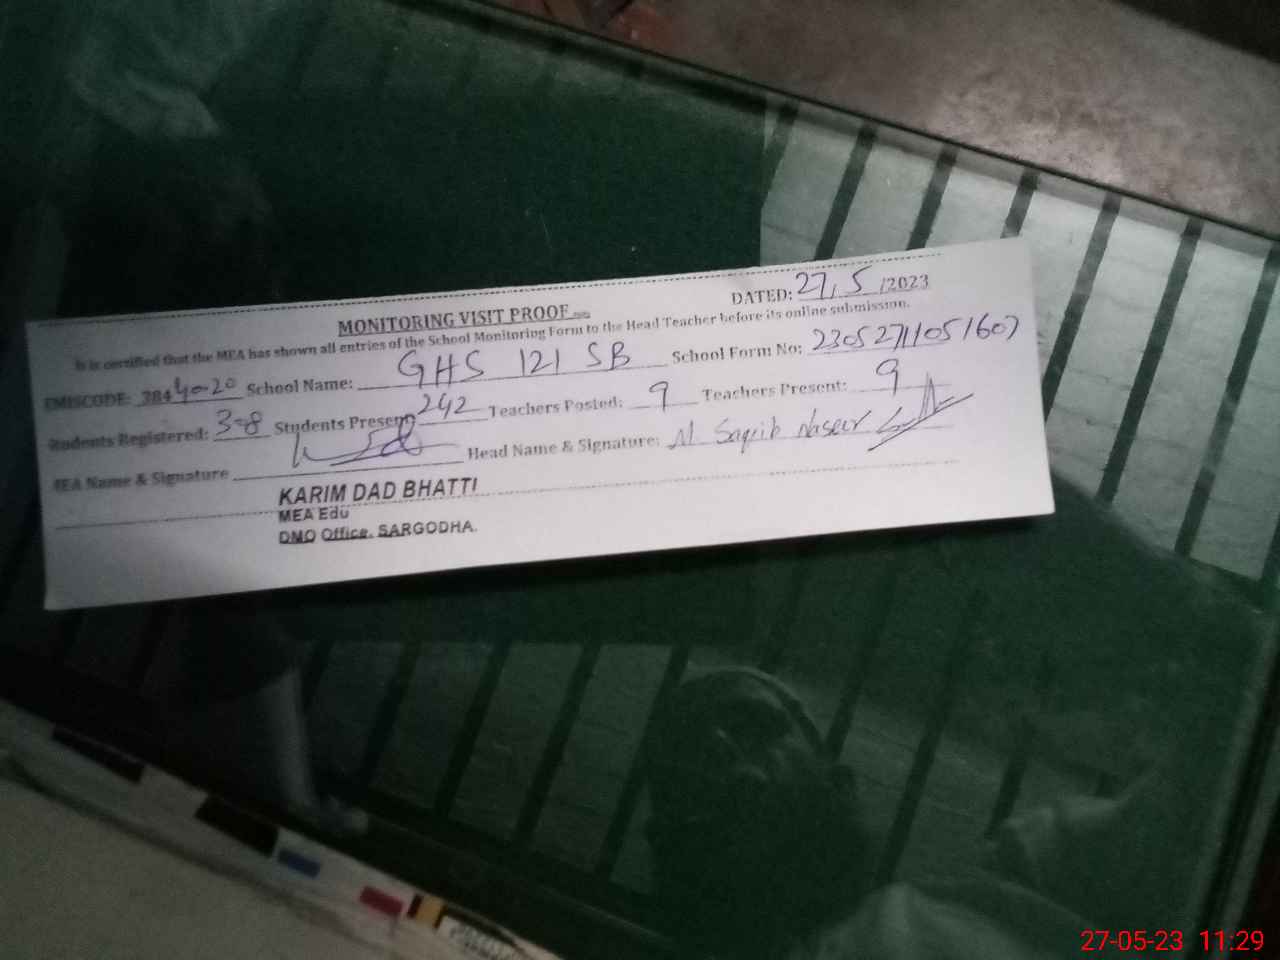 DATED: 27, 5 /2023
MONITORING VISIT PROOF
It is certified that the MEA has shown all entries of the School Monitoring Form to the Head Teacher before its online submission.
EMISCODE: 384 40-20 School Name: GHS 121 SB School Form No:
Students Registered: Students Present 242 Teachers Posted: 9 Teachers Present: 9
MEA Name & Signature Head Name & Signature: M Saqib Naseer
KARIM DAD BHATTI
MEA Edu
DMO Office. SARGODHA.
27-05-23 11:29